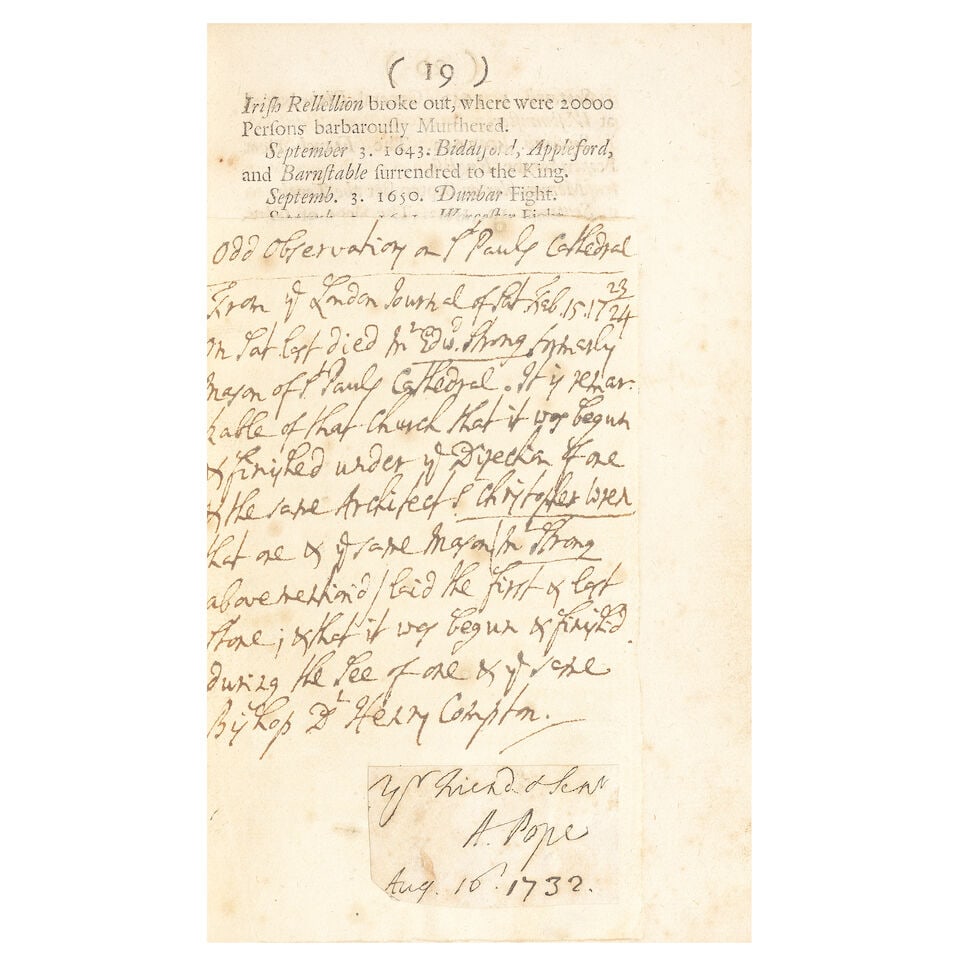 ( 19 )
Irish Rellellion broke out, where were 20000
Persons barbarously Murthered.
September 3. 1643. Biddiford, Appleford,
and Barnstable surrendred to the King.
Septemb. 3. 1650. Dunbar Fight.
Odd Observation on St Pauls Cathedral
From ye London Journal of Sat. Feb. 15. 17 23/24
On Sat last died Mr Edwd. Strong formerly
Mason of St Pauls Cathedral. It is remar-
kable of that Church that it was begun
& finished under ye Direction of one
& the same Architect Sr Christopher Wren
that one & ye same Mason / Mr Strong
above mention'd / laid the first & last
Stone; & that it was begun & finish'd
during the See of one & ye same
Bishop Dr Henry Compton.
yr Friend & Servt
A. Pope
Aug. 16. 1732.